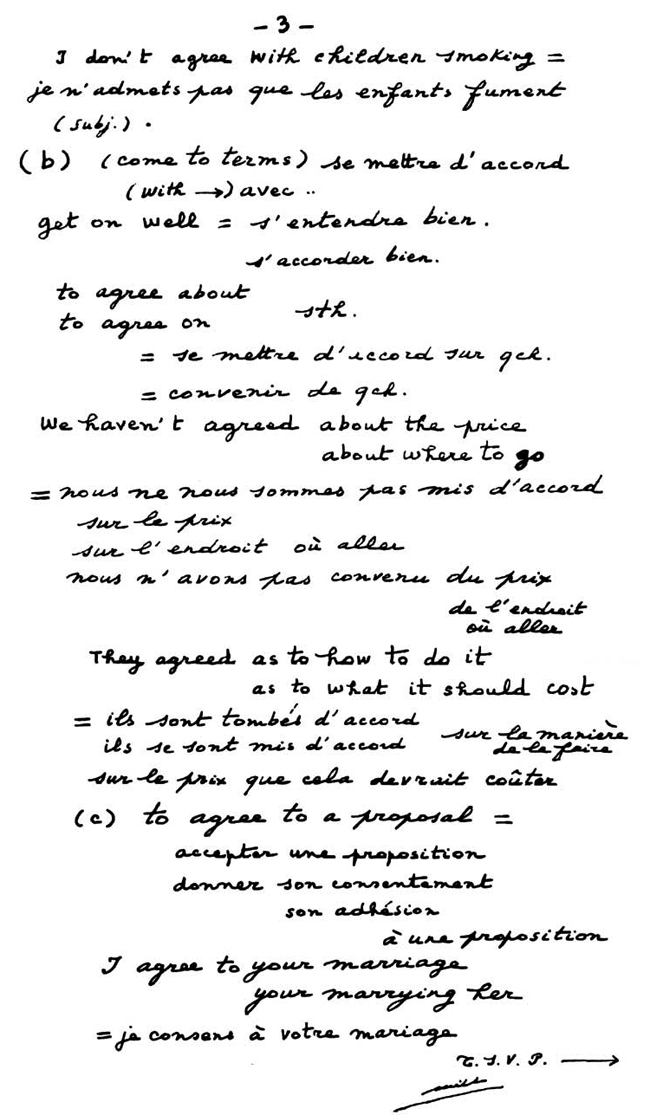 - 3 -
I don't agree with children smoking =
je n'admets pas que les enfants fument
(subj.).
(b) (come to terms) se mettre d'accord
(with →) avec ..
get on well = s'entendre bien.
s'accorder bien.
to agree about
sth.
to agree on
= se mettre d'accord sur qch.
= convenir de qch.
We haven't agreed about the price
about where to go
= nous ne nous sommes pas mis d'accord
sur le prix
sur l'endroit où aller
nous n'avons pas convenu du prix
de l'endroit
où aller
They agreed as to how to do it
as to what it should cost
= ils sont tombés d'accord
ils se sont mis d'accord sur la manière
de le faire
sur le prix que cela devrait coûter
(c) to agree to a proposal =
accepter une proposition
donner son consentement
son adhésion
à une proposition
I agree to your marriage
your marrying her
= je consens à votre mariage
T.S.V.P. →